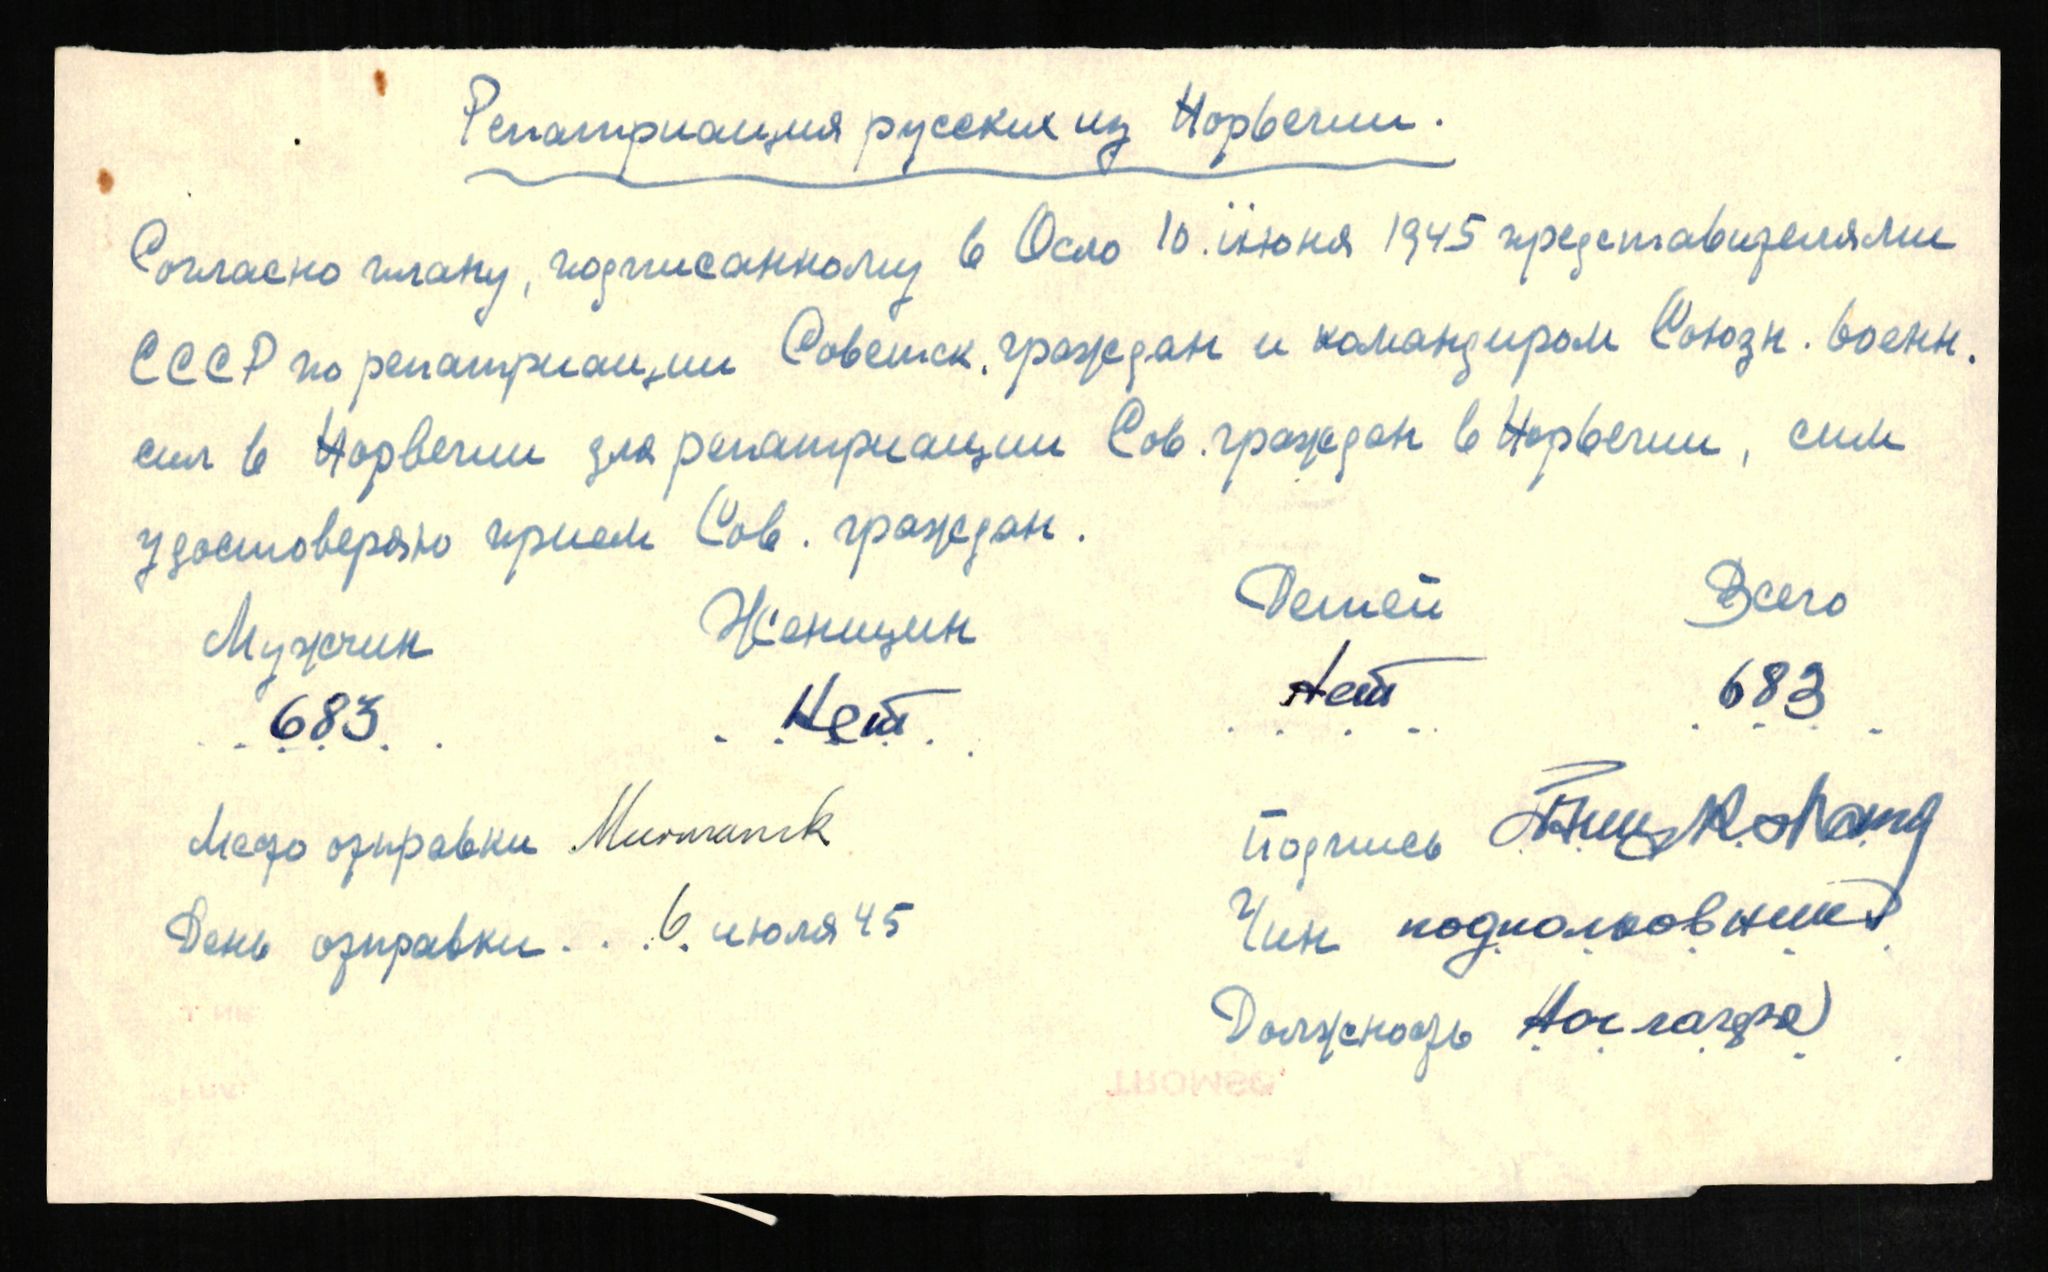 Репатриация русских из Норвегии.
Согласно плану, подписанному в Осло 10. июня 1945 представителями
СССР по репатриации Советск. граждан и командиром Союзн. военн.
сил в Норвегии для репатриации Сов. граждан в Норвегии, сим
удостоверяю прием Сов. граждан.
Мужчин Женщин Детей Всего
683 Нет Нет 683
Место отправки Murmansk Подпись
День отправки . . . 6. июля 45 Чин подполковник
Должность
TROMSØ